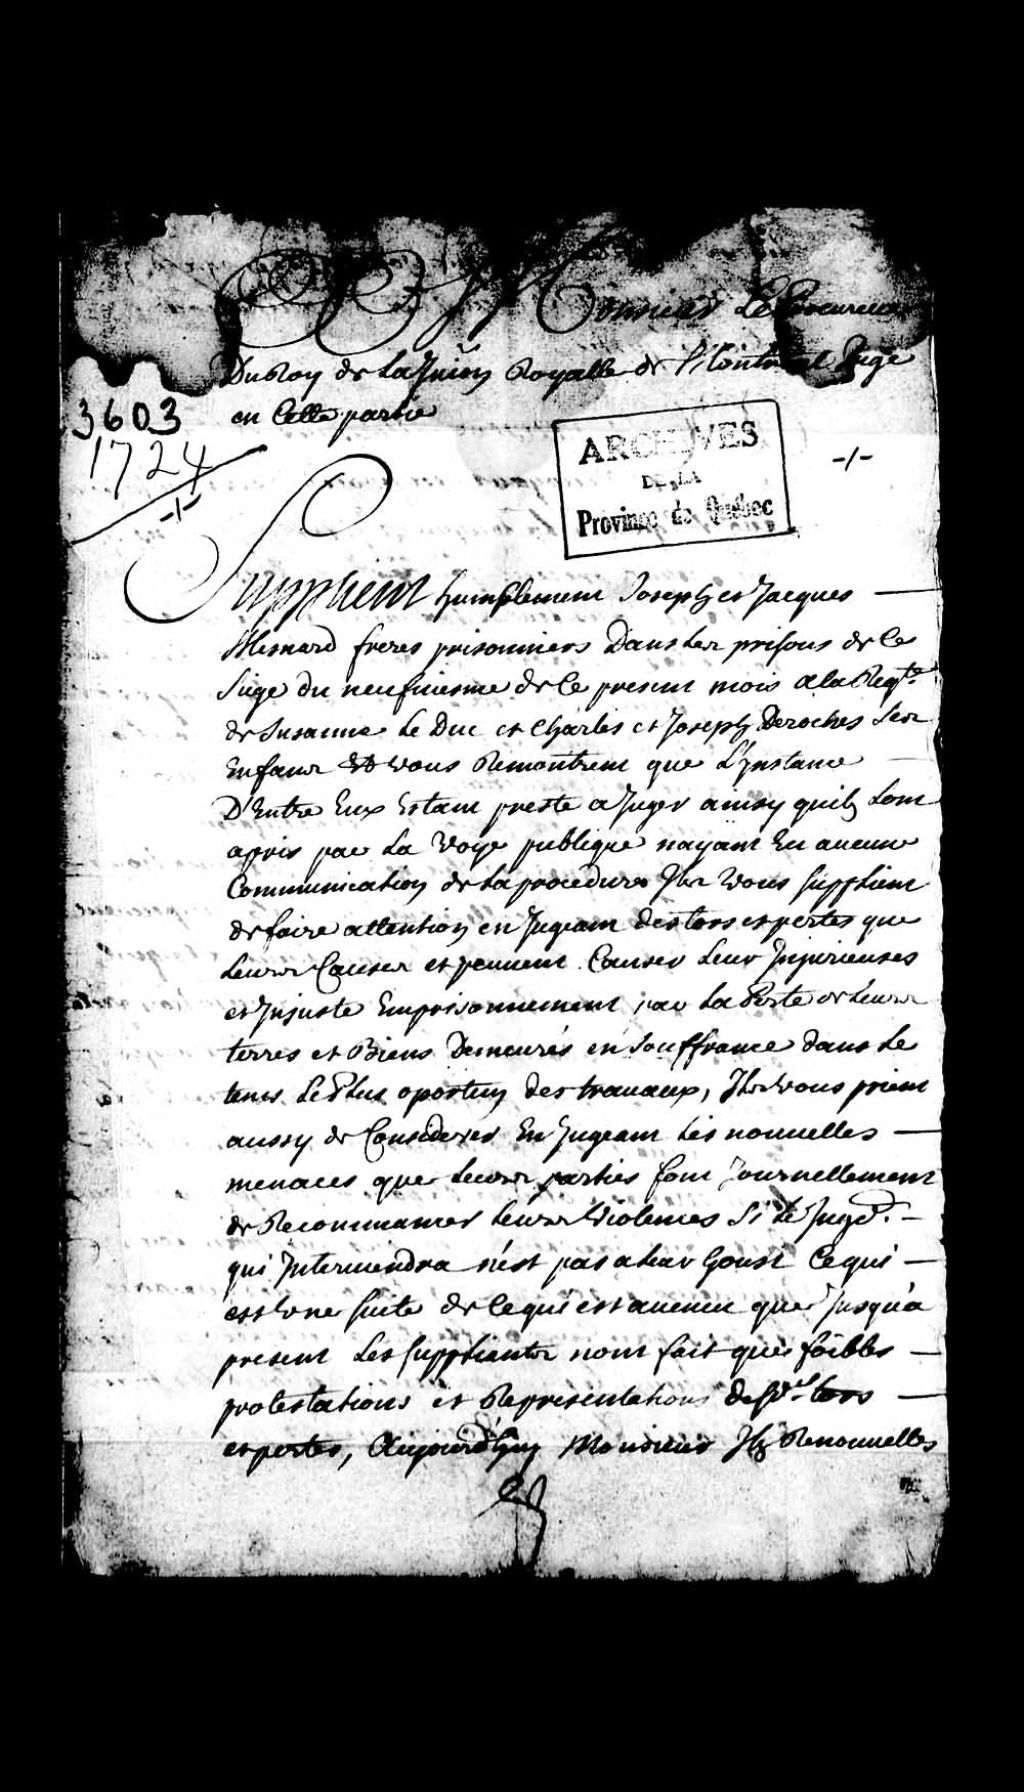 A Monsieur Le Procureur
Du Roy de la Juri.on Royalle de Montreal Juge
en Cette partie
3603
1724
-/-
ARCHIVES
DE LA
Province de Québec
-/-
Supplient humblement Joseph et Jacques
Mesnard freres prisonniers Dans les prisons de Ce
siege du neufiesme de Ce present mois a la Reqte
de Susanne Le Duc et Charles et Joseph Deroches Ses
Enfans vous Remontrent que L'Instance
D'Entre Eux Estant preste a Juger ainsy quils Lont
apris par La Voye publique nayant Eu aucune
Communication de La procedure Ils vous supplient
de faire attention en Jugeant des torts et pertes que
Leurs Causer et peuvent Causer Leur Injurieuses
et Injuste Emprisonnement par La Perte de Leurs
terres et Biens Demeurés en souffrance dans Le
tems Le Plus oportun des travaux, Ils vous prient
aussy de Considerer En Jugeant Les nouvelles
menaces que Leurs parties font Journellement
de Recommancer Leurs Violences Si Le Juge.t
qui Interviendra n'est pas a Leur Goust Ce qui
est Une suite de Ce qui est avenu que Jusqu'a
present Les supplians nont fait que foibles
protestations et Representations de torts
et pertes, Aujourd'huy Monsieur Ils Renouvelles